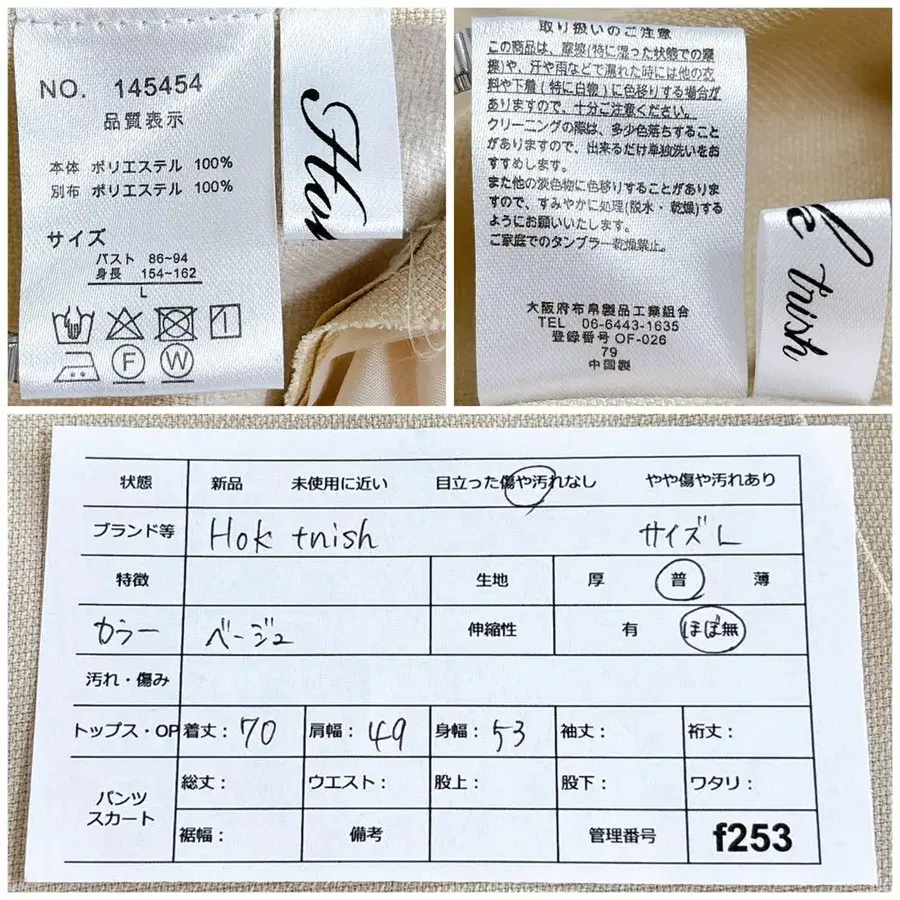 NO. 145454
品質表示
本体 ポリエステル 100%
別布 ポリエステル 100%
サイズ
バスト 86~94
身長 154~162
L
F
W
取り扱いのご注意
この商品は、摩擦(特に湿った状態での摩
擦)や、汗や雨などで濡れた時には他の衣
料や下着(特に白物)に色移りする場合が
ありますので、十分ご注意ください。
クリーニングの際は、多少色落ちすること
がありますので、出来るだけ単独洗いをお
すすめします。
また他の淡色物に色移りすることがありま
すので、すみやかに処理(脱水・乾燥)する
ようにお願いいたします。
ご家庭でのタンブラー乾燥禁止。
大阪府布帛製品工業組合
TEL 06-6443-1635
登録番号 OF-026
79
中国製
tnish
状態 新品 未使用に近い 目立った傷や汚れなし やや傷や汚れあり
ブランド等 Hok tnish サイズ L
特徴 生地 厚 普 薄
カラー ベージュ 伸縮性 有 ほぼ無
汚れ・傷み
トップス・OP 着丈: 70 肩幅: 49 身幅: 53 袖丈: 裄丈:
パンツ スカート 総丈: ウエスト: 股上: 股下: ワタリ:
裾幅: 備考 管理番号 f253